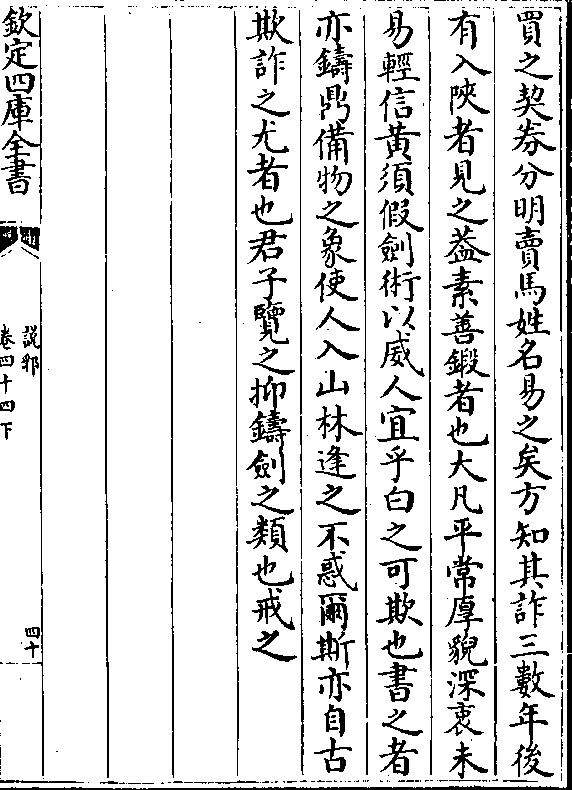 買之契券分明賣馬姓名易之矣方知其詐三數年後
有入陝者見之葢素善鍛者也大凡平常厚貎深衷未
易輕信黄須假劍術以威人宜乎白之可欺也書之者
亦鑄鼎備物之象使人入山林逢之不惑爾斯亦自古
欺詐之尤者也君子覽之抑鑄劍之類也戒之
欽定四庫全書
説郛
卷四十四下
四十